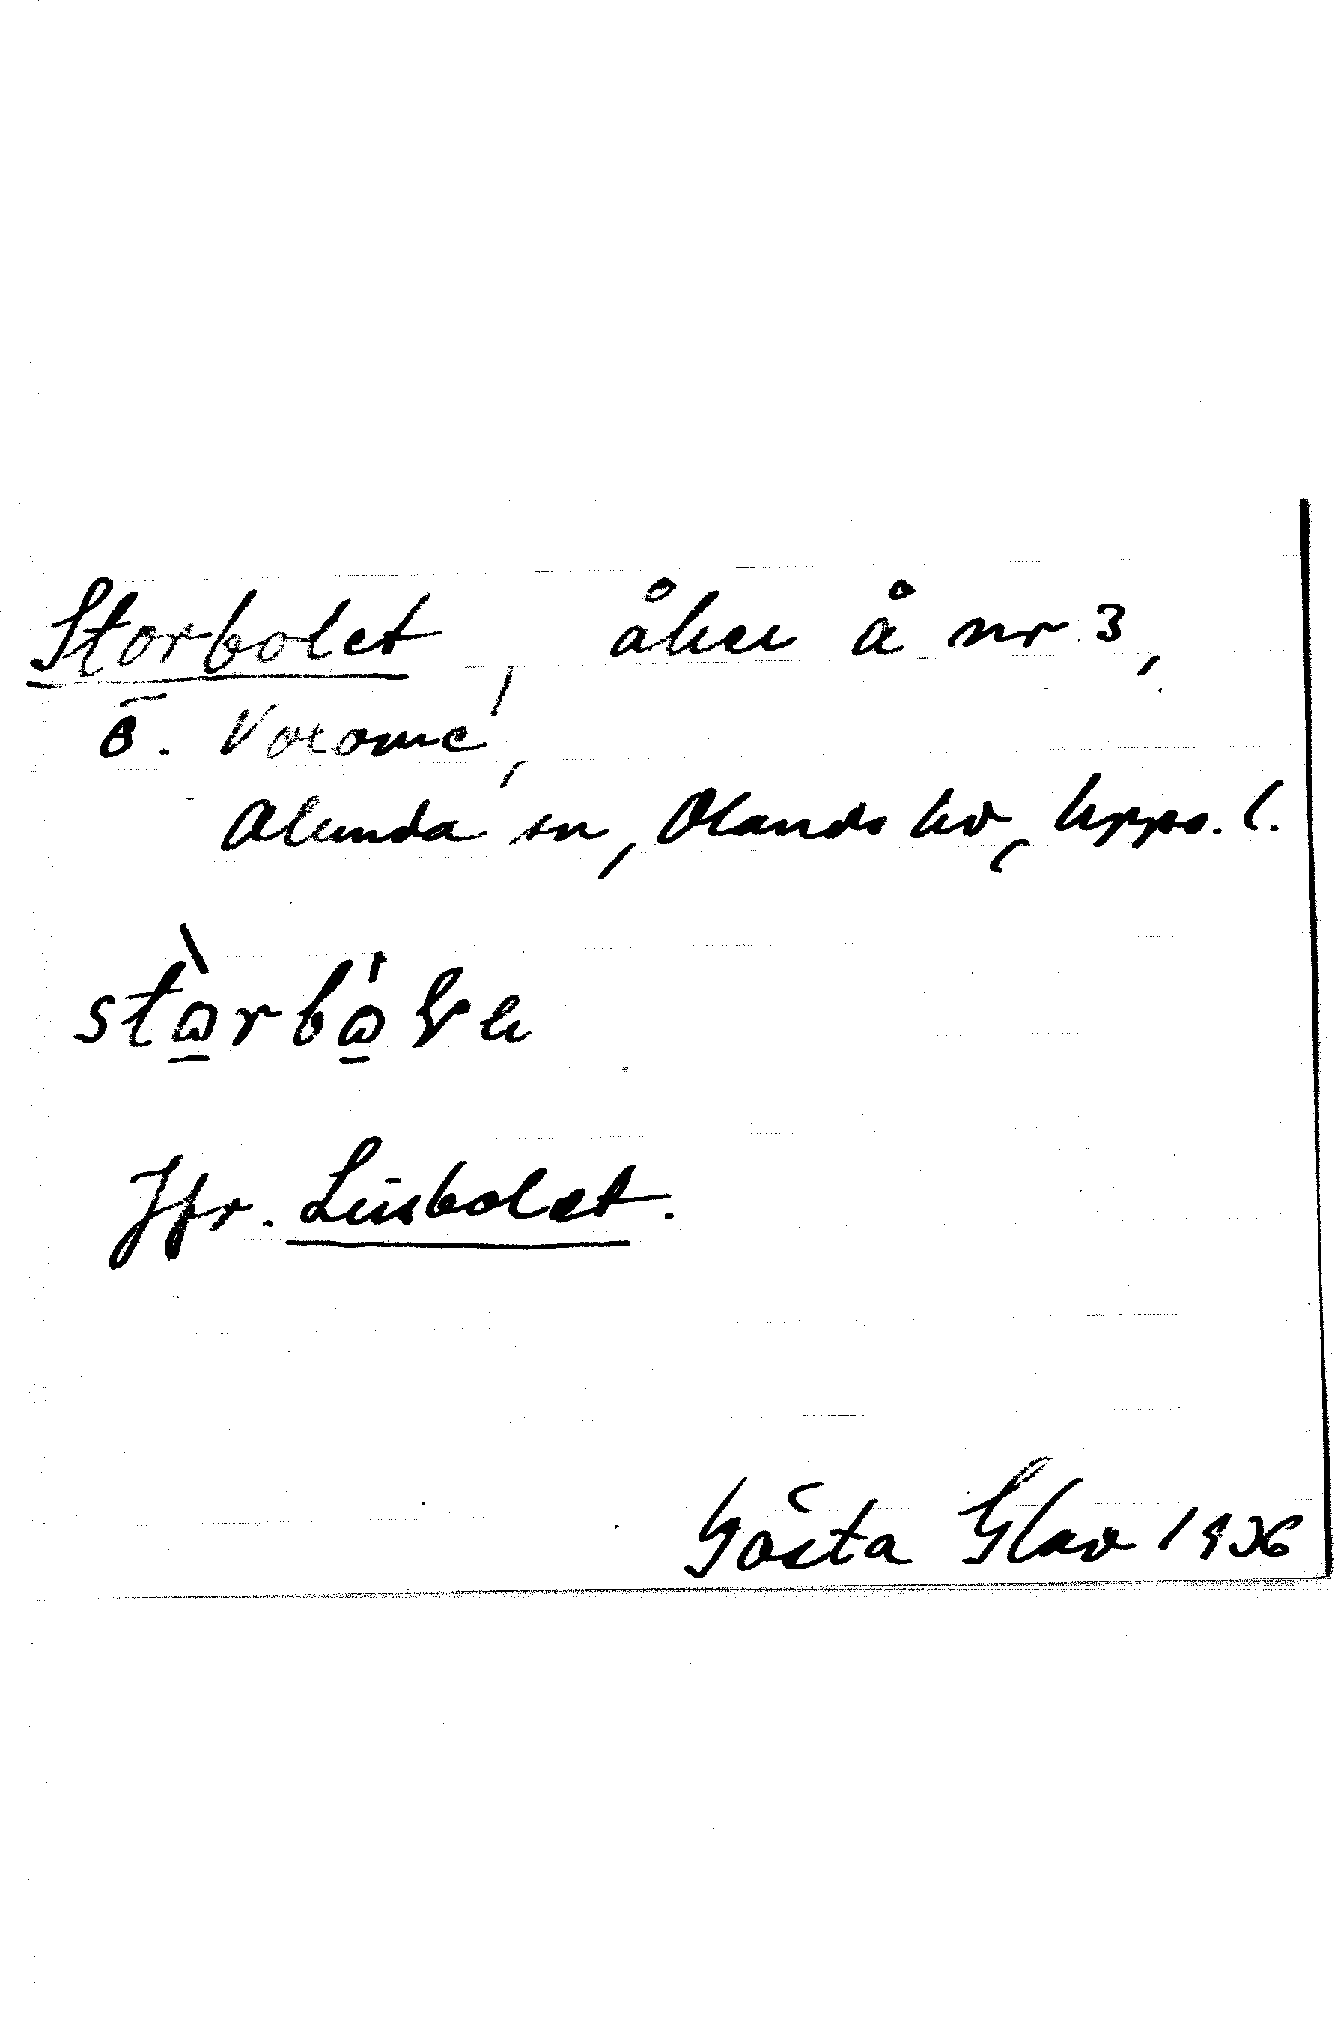 Storbolet, åker å nr 3,
Ö. Voxome,
Alunda sn, Olands hd, Upps. l.
Jfr. Lusbolet.
Gösta Glav 1936